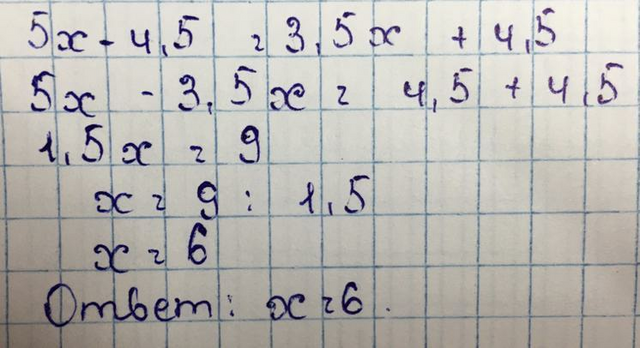 5x - 4,5 = 3,5x + 4,5
5x - 3,5x = 4,5 + 4,5
1,5x = 9
x = 9 : 1,5
x = 6
Ответ: x = 6.